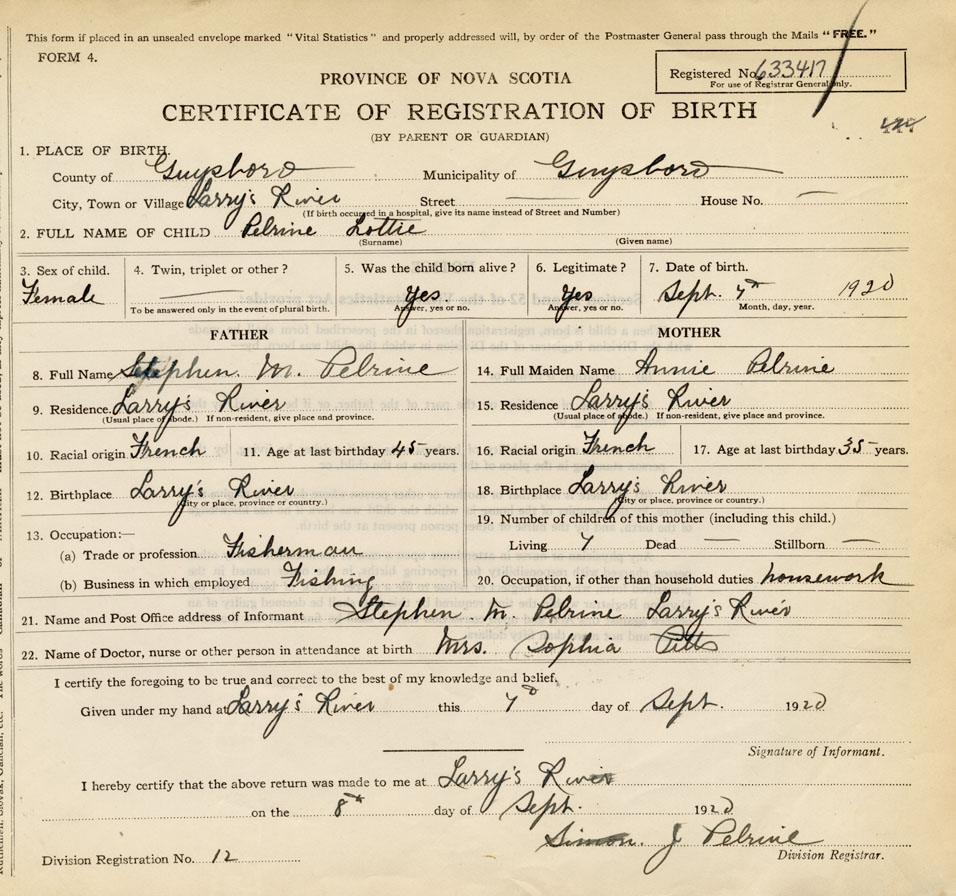 This form if placed in an unsealed envelope marked "Vital Statistics" and properly addressed will, by order of the Postmaster General pass through the Mails "FREE."
FORM 4.
Registered No. 633417
For use of Registrar General only.
PROVINCE OF NOVA SCOTIA
CERTIFICATE OF REGISTRATION OF BIRTH
(BY PARENT OR GUARDIAN)
1. PLACE OF BIRTH.
County of Guysboro Municipality of Guysboro
City, Town or Village Larry's River Street — House No. —
(If birth occurred in a hospital, give its name instead of Street and Number)
2. FULL NAME OF CHILD Pelrine Lottie
(Surname) (Given name)
3. Sex of child. 4. Twin, triplet or other? 5. Was the child born alive? 6. Legitimate? 7. Date of birth.
Female — Yes Yes Sept. 1920
To be answered only in the event of plural birth. Answer, yes or no. Answer, yes or no. Month, day, year.
FATHER MOTHER
8. Full Name Stephen M. Pelrine 14. Full Maiden Name Annie Pelrine
9. Residence. Larry's River 15. Residence Larry's River
(Usual place of abode.) If non-resident, give place and province. (Usual place of abode.) If non-resident, give place and province.
10. Racial origin French 11. Age at last birthday 45 years. 16. Racial origin French 17. Age at last birthday 35 years.
12. Birthplace Larry's River 18. Birthplace Larry's River
(City or place, province or country.) (City or place, province or country.)
13. Occupation:— 19. Number of children of this mother (including this child.)
(a) Trade or profession Fisherman Living 7 Dead — Stillborn —
(b) Business in which employed Fishing 20. Occupation, if other than household duties housework
21. Name and Post Office address of Informant Stephen M. Pelrine Larry's River
22. Name of Doctor, nurse or other person in attendance at birth Mrs. Sophia Pitts
I certify the foregoing to be true and correct to the best of my knowledge and belief.
Given under my hand at Larry's River this 7 day of Sept. 1920
Signature of Informant.
I hereby certify that the above return was made to me at Larry's River
on the 8th day of Sept. 1920
Simon J Pelrine
Division Registration No. 12 Division Registrar.